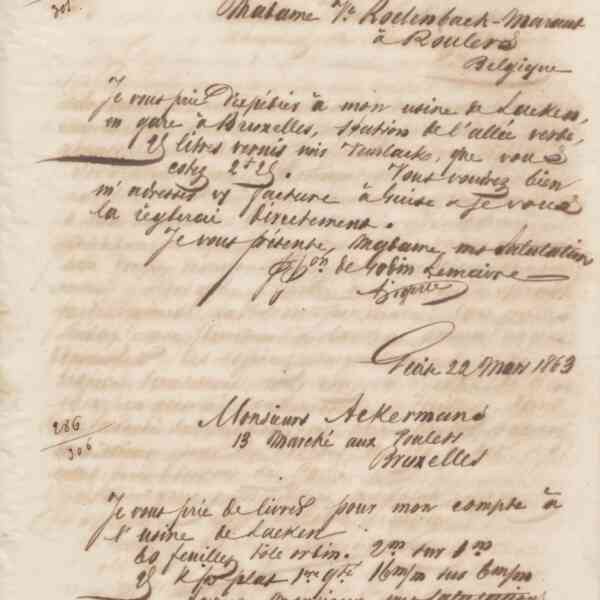 301.
Madame Ve Rodenback-Marant
à Roulers
Belgique
Je vous prie d'expédier à mon usine de Laeken,
en gare à Bruxelles, station de l'allée verte,
25 litres vernis noir que vous
cotez 2f 25. Vous voudrez bien
m'adresser vo facture à Guise & je vous
la règlerai directement.
Je vous présente, Madame, mes salutations
Pon de Godin Lemaire
Guise 22 Mars 1863
286
306
Monsieurs Ackermans
13 Marché aux Poulets
Bruxelles
Je vous prie de livrer pour mon compte à
l'usine de Laeken
60 feuilles tôle ordin. 2m sur 1m
25 k fer plat 1re qté 16m/m sur 6m/m
Monsieur mes salutations